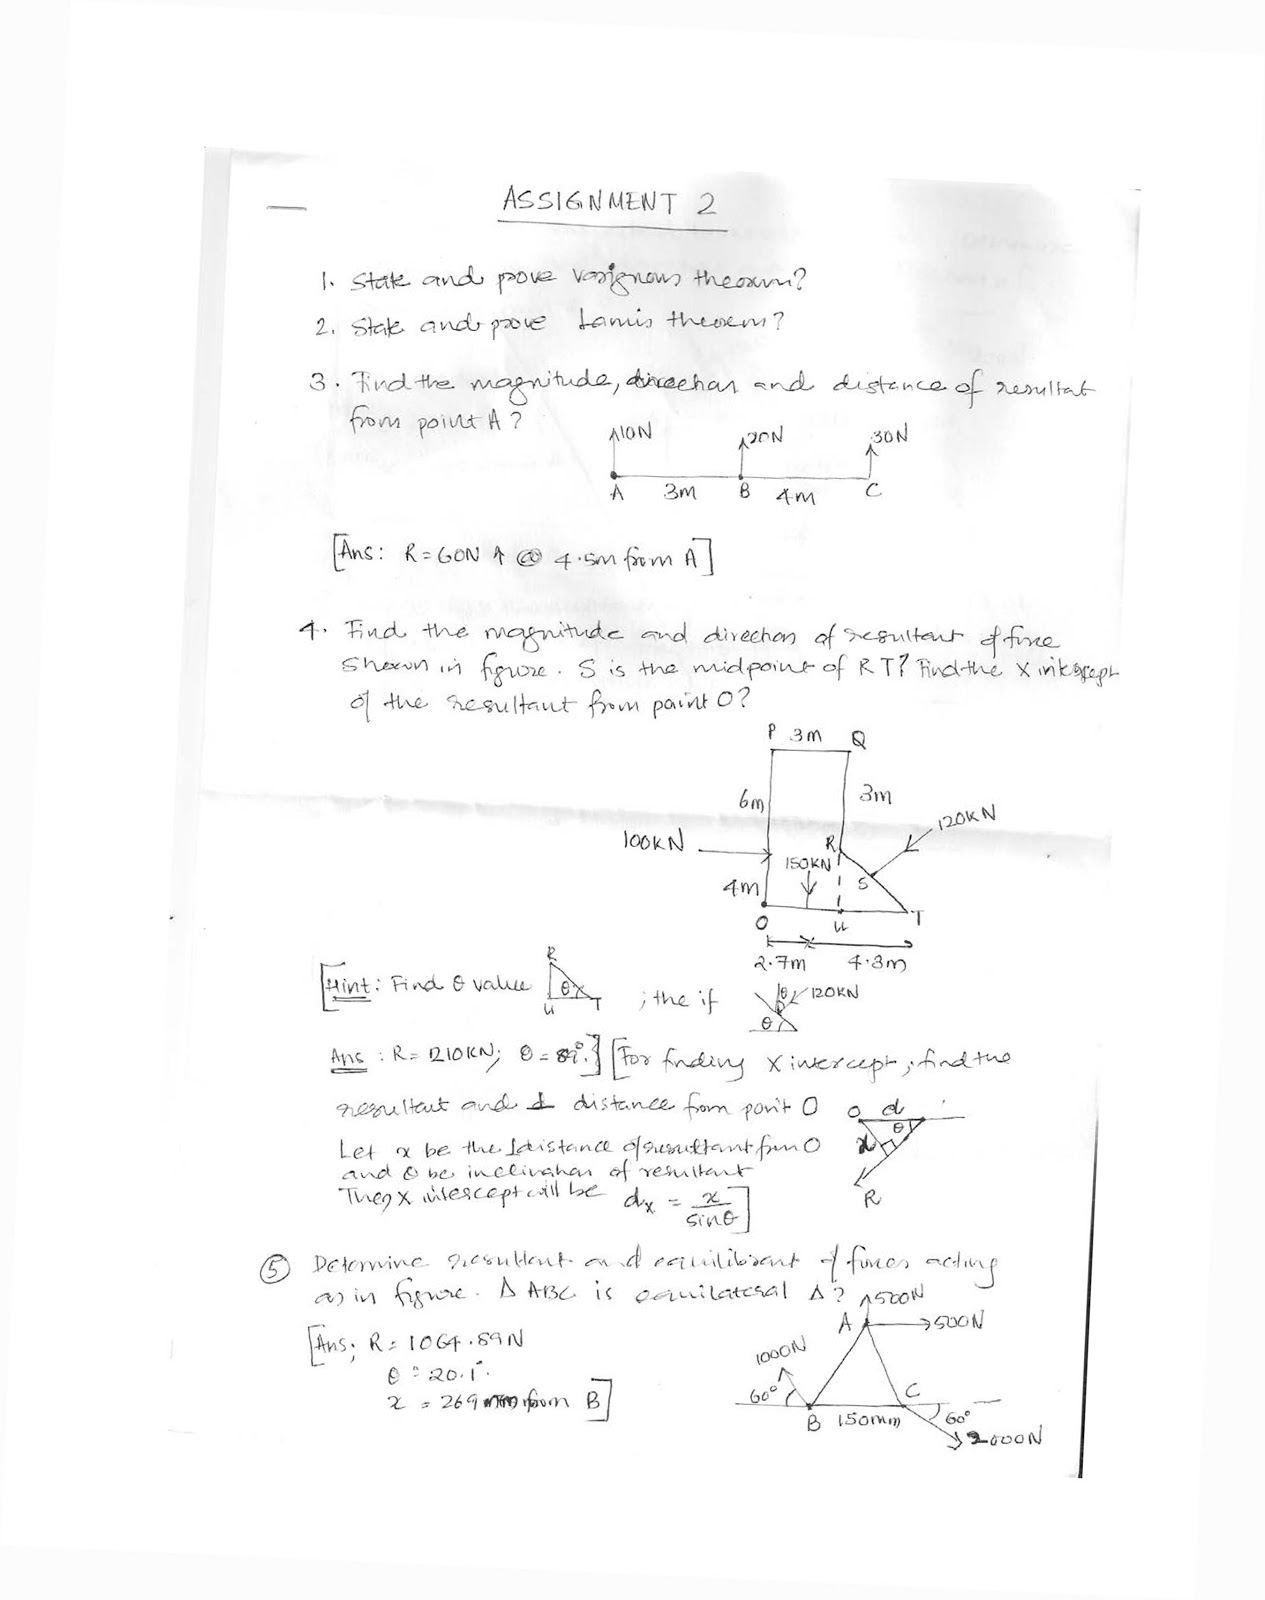 ASSIGNMENT 2
1. State and prove Varignons theorem?
2. State and prove Lamis theorem?
3. Find the magnitude, direction and distance of resultat
from point A?
10N 20N 30N
A 3m B 4m C
[Ans: R = 60N ↑ @ 4.5m from A]
4. Find the magnitude and direction of resultant of force
shown in figure. S is the midpoint of RT? Find the X intercept
of the resultant from point O?
P 3m Q
6m 3m
120KN
100KN R
150KN
4m S
O U T
2.7m 4.3m
[Hint: Find θ value R θ U T ; the if θ 120KN θ
Ans: R = 210KN; θ = 89°.] [For finding X intercept, find the
resultant and ⊥ distance from point O
O d θ x R
Let x be the ⊥distance of resultant from O
and θ be inclination of resultant
Then X intercept will be dx = x / sinθ]
5 Determine resultant and equilibrant of forces acting
as in figure. Δ ABC is equilateral Δ? 500N
[Ans; R = 1064.89N
A 500N
θ = 20.1°.
1000N
x = 269 mm from B]
60° B 150mm C 60°
2000N